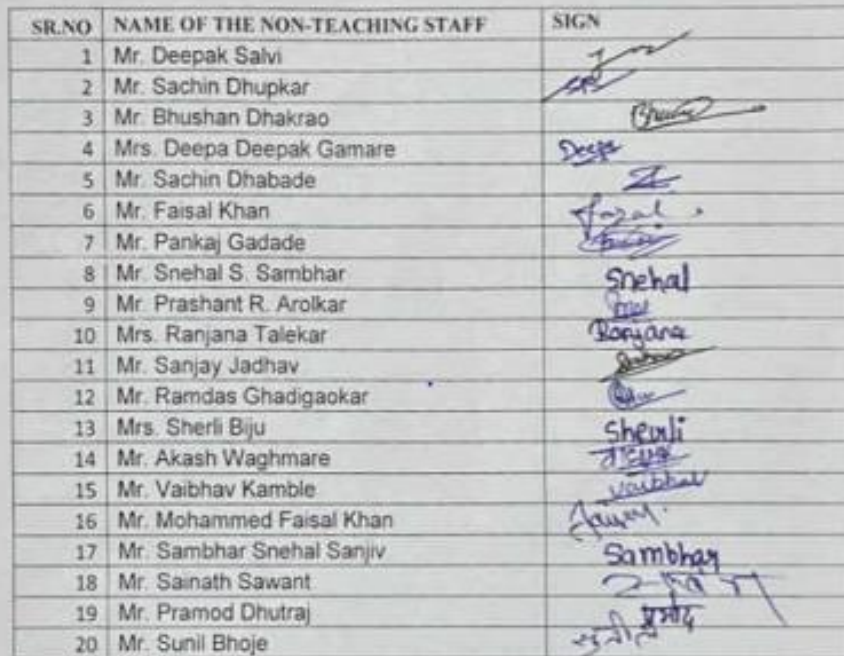 SR.NO NAME OF THE NON-TEACHING STAFF SIGN
1 Mr. Deepak Salvi
2 Mr. Sachin Dhupkar
3 Mr. Bhushan Dhakrao
4 Mrs. Deepa Deepak Gamare Deepa
5 Mr. Sachin Dhabade
6 Mr. Faisal Khan
7 Mr. Pankaj Gadade
8 Mr. Snehal S. Sambhar Snehal
9 Mr. Prashant R. Arolkar
10 Mrs. Ranjana Talekar Ranjana
11 Mr. Sanjay Jadhav
12 Mr. Ramdas Ghadigaokar
13 Mrs. Sherli Biju Sherli
14 Mr. Akash Waghmare
15 Mr. Vaibhav Kamble Vaibhav
16 Mr. Mohammed Faisal Khan
17 Mr. Sambhar Snehal Sanjiv Sambhar
18 Mr. Sainath Sawant
19 Mr. Pramod Dhutraj प्रमोद
20 Mr. Sunil Bhoje सुनील